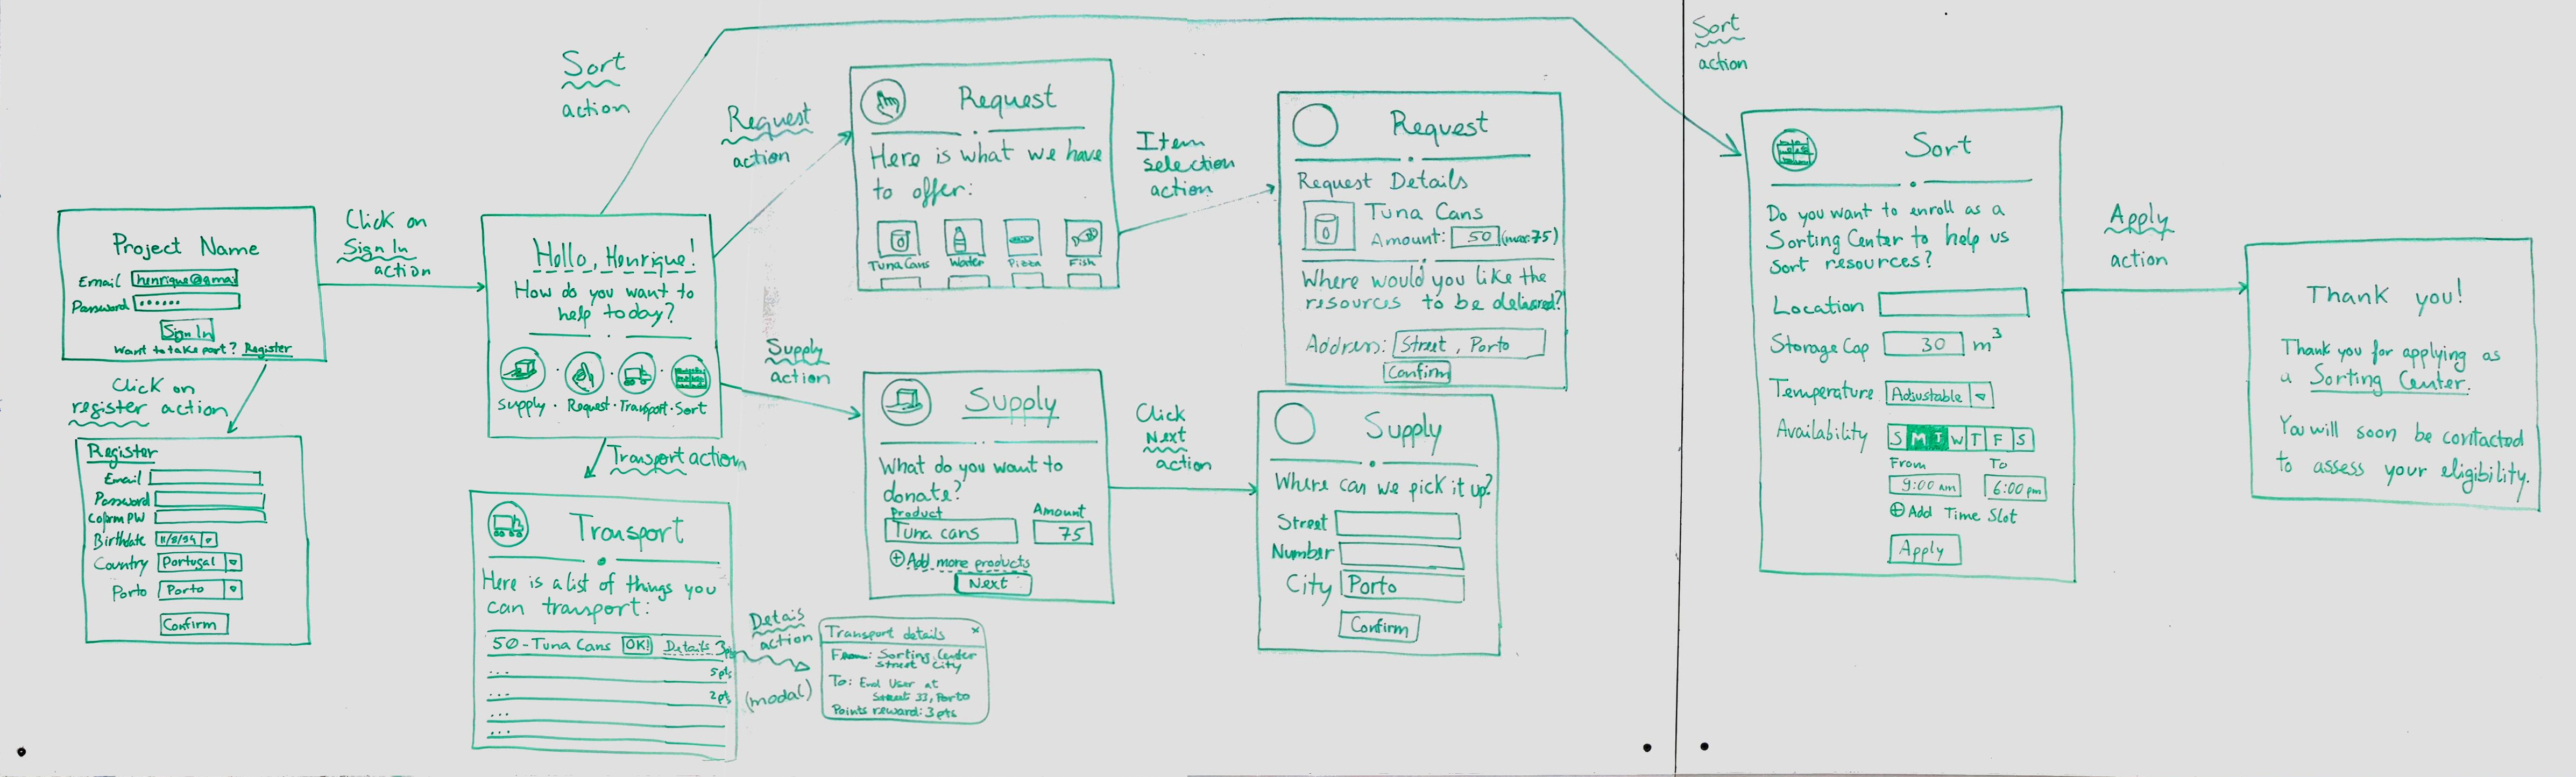 Project Name
Email henrique@gmai
Password ••••••
Sign In
Want to take part? Register
Click on
Sign In
action
Click on
register action
Register
Email
Password
Cofirm PW
Birthdate 11/8/94
Country Portugal
Porto Porto
Confirm
Hello, Henrique!
How do you want to
help today?
Supply · Request · Transport · Sort
Sort
action
Request
action
Supply
action
Transport action
Transport
Here is a list of things you
can transport:
50 - Tuna Cans OK! Details 3pts
... 5pts
... 2pts
...
...
Detais
action
(modal)
Transport details x
From: Sorting Center
Street City
To: End User at
Street 33, Porto
Points reward: 3pts
Request
Here is what we have
to offer:
Tuna Cans Water Pizza Fish
Item
selection
action
Request
Request Details
Tuna Cans
Amount: 50 (max:75)
Where would you like the
resources to be delivered?
Address: Street, Porto
Confirm
Supply
What do you want to
donate?
Product Amount
Tuna cans 75
+ Add more products
Next
Click
Next
action
Supply
Where can we pick it up?
Street
Number
City Porto
Confirm
Sort
action
Sort
Do you want to enroll as a
Sorting Center to help us
sort resources?
Location
Storage Cap 30 m³
Temperature Adjustable
Availability S M T W T F S
From To
9:00 am 6:00 pm
+ Add Time Slot
Apply
Apply
action
Thank you!
Thank you for applying as
a Sorting Center.
You will soon be contacted
to assess your eligibility.